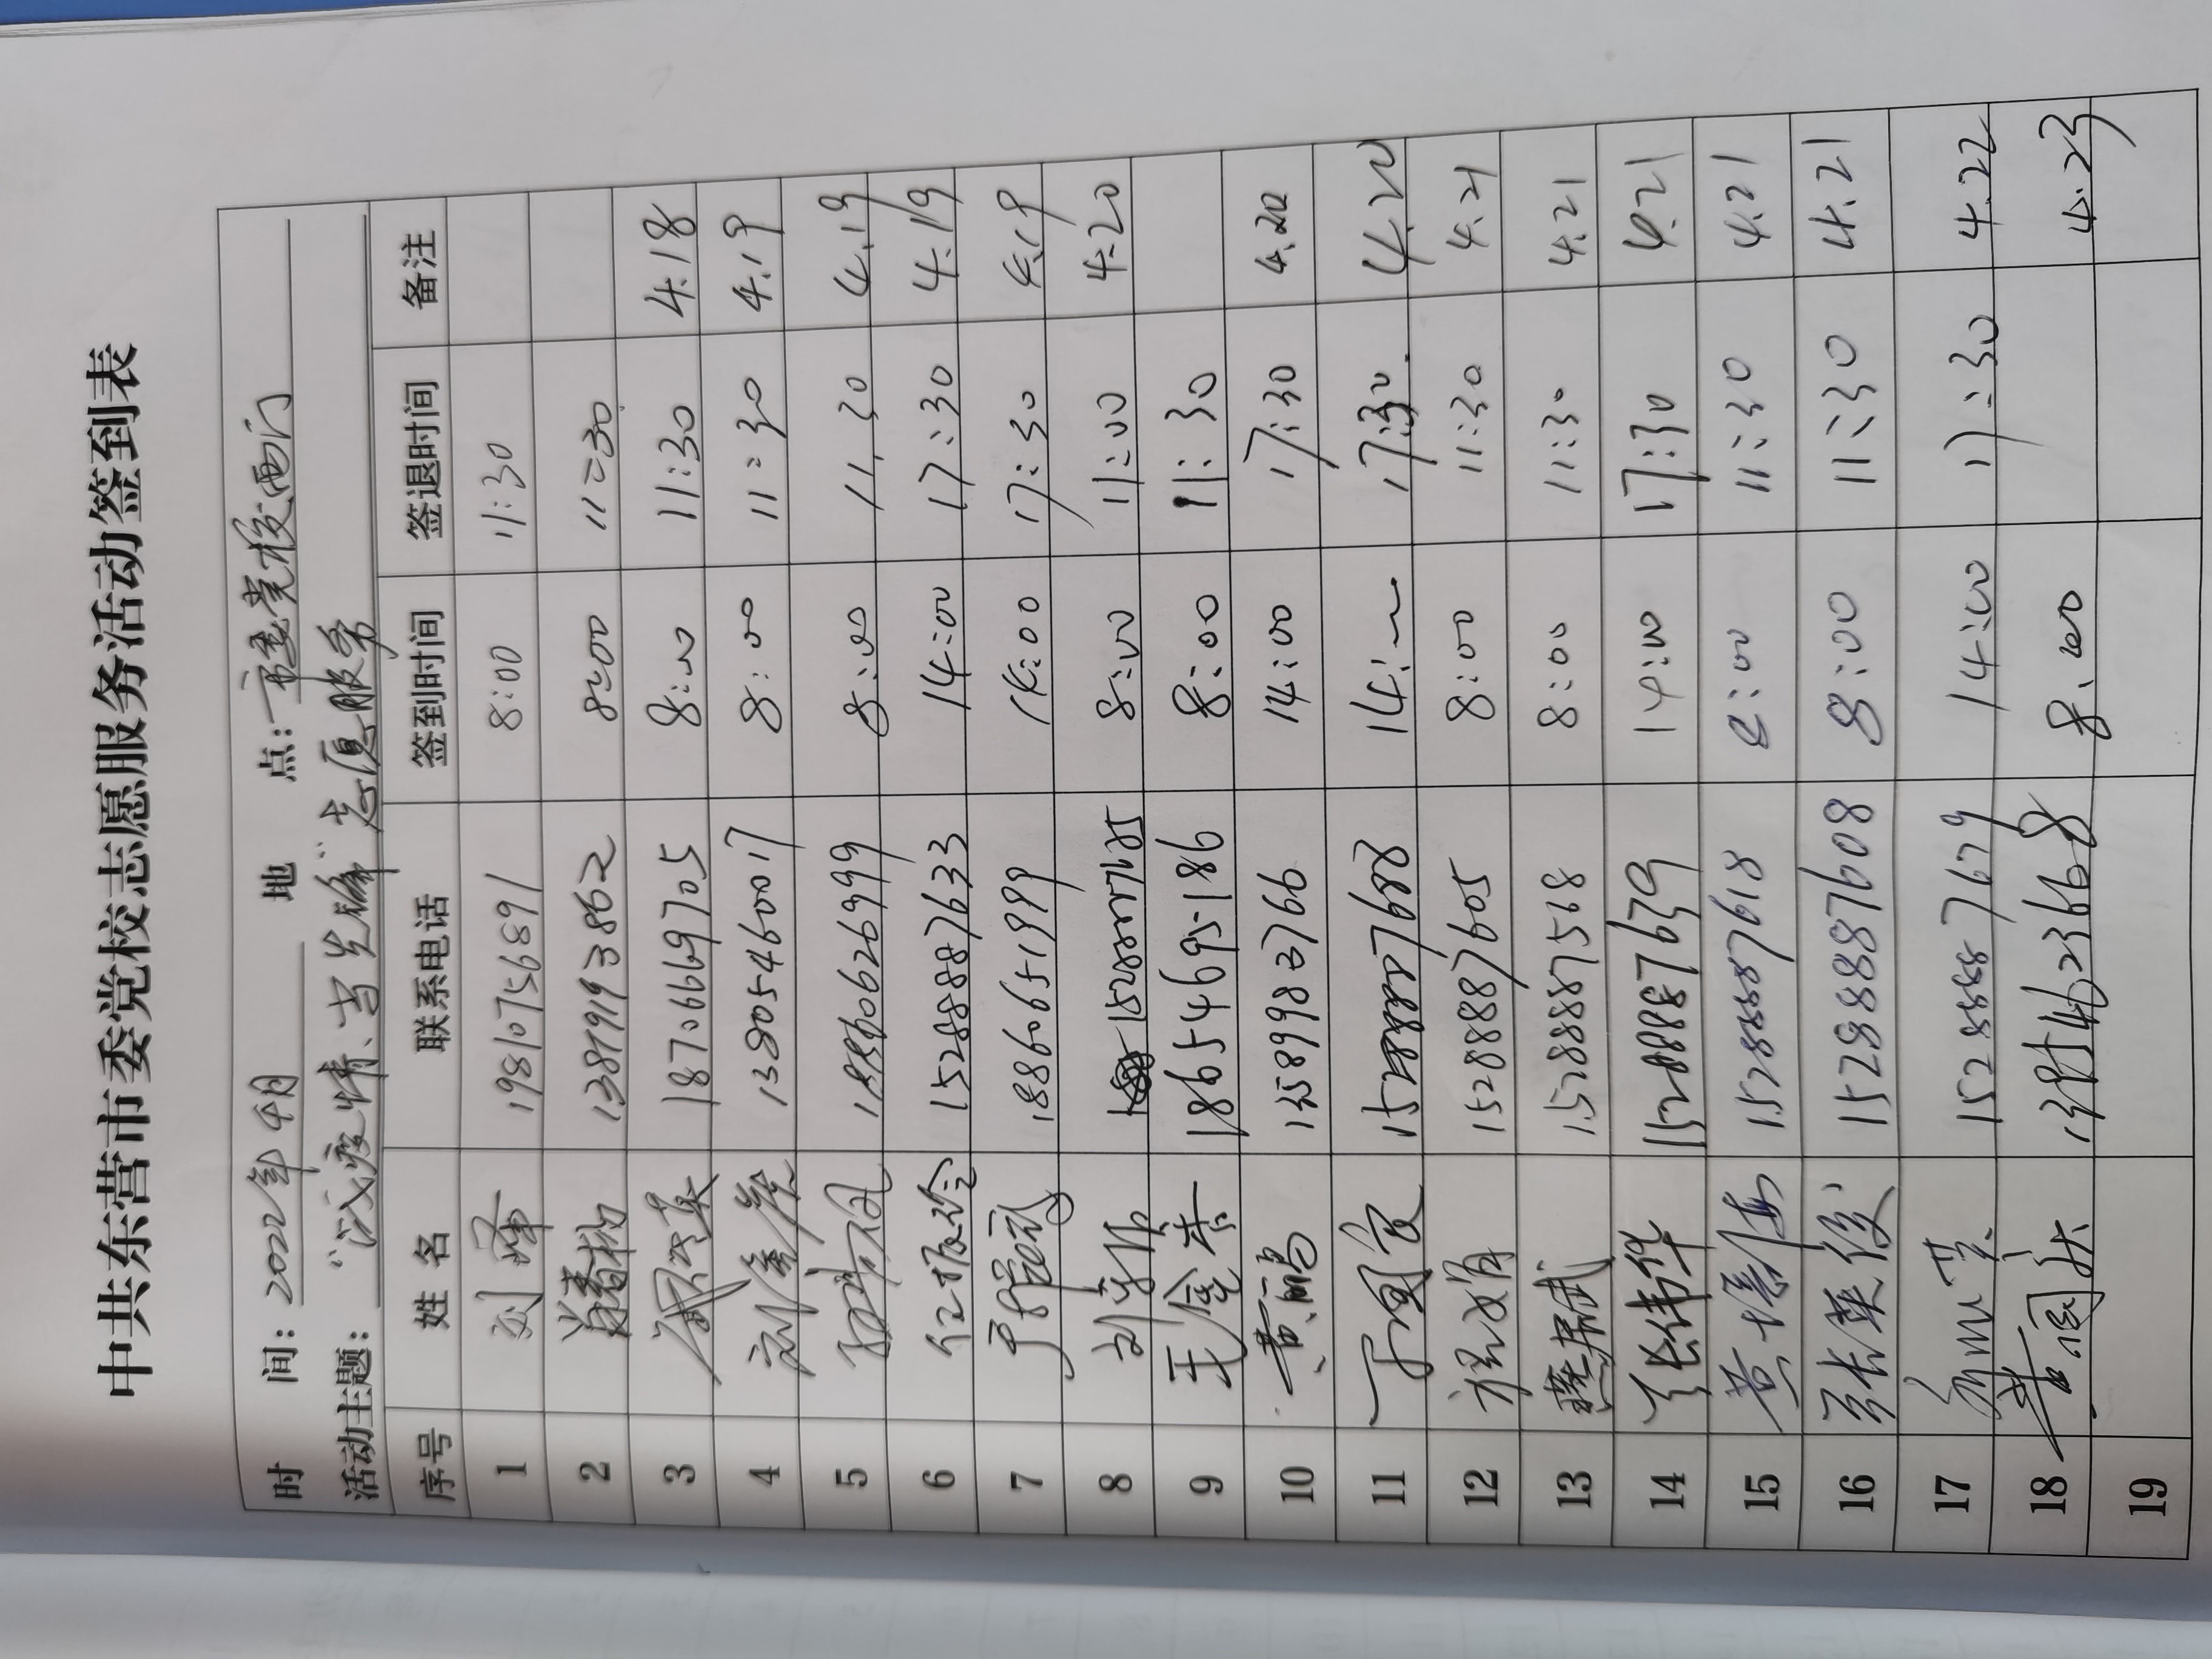 中共东营市委党校志愿服务活动签到表
时 间: 2022年4月 地 点: 市委党校西门
活动主题: “战疫情、当先锋”志愿服务
序号 姓 名 联系电话 签到时间 签退时间 备注
1 刘峰 19810756891 8:00 11:30
2 13879193862 8:00 11:30
3 18706669705 8:00 11:30 4.18
4 13805460017 8:00 11:30 4.19
5 18860626999 8:00 11.30 4.19
6 任振玲 15288887633 14:00 17:30 4.19
7 18860651999 14:00 17:30 4.19
8 8:00 11:00 4.20
9 18654695186 8:00 11:30
10 黄鹂 14:00 17:30 4.20
11 15288887688 14: 17:30. 4.20
12 15288887605 8:00 11:30 4.21
13 15288887568 8:00 11:30 4.21
14 张纬华 15288887639 14:00 17:30 4.21
15 15288887618 8:00 11:30 4.21
16 张荣俊 15288887608 8:00 11:30 4.21
17 15288887679 14:00 17:30 4.22
18 8.00 4.23
19